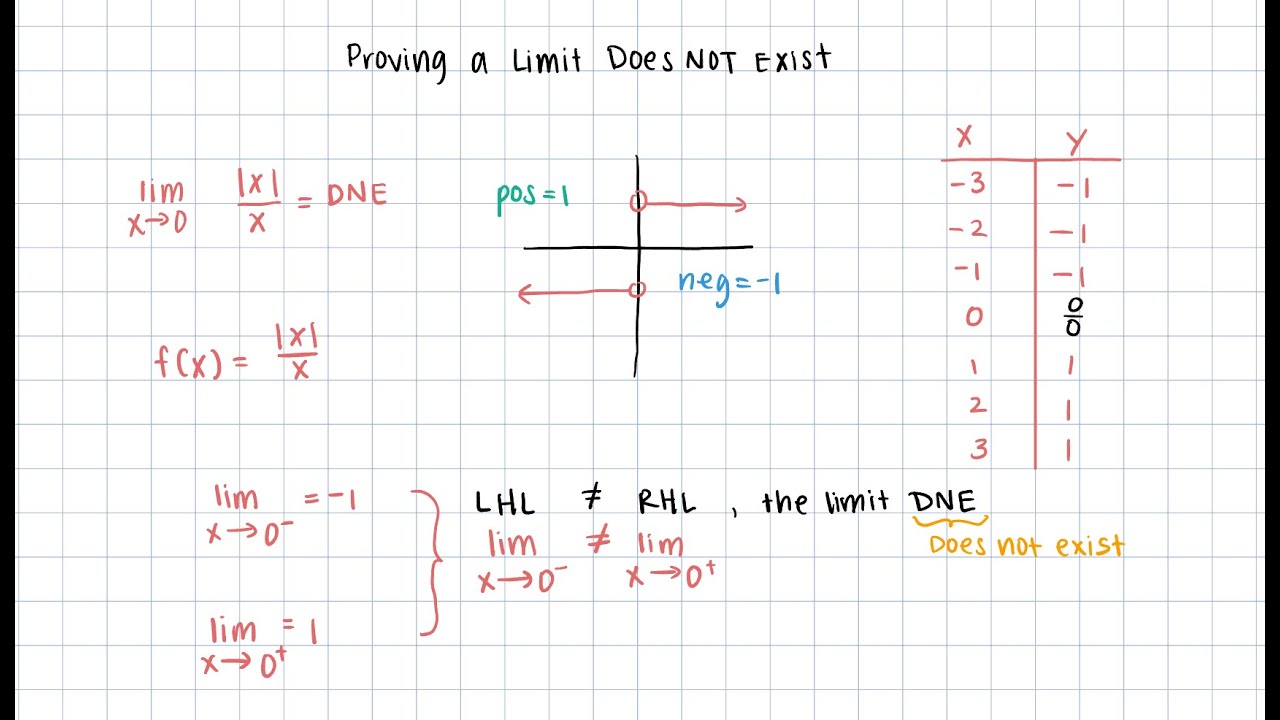 Proving a Limit Does NOT Exist
lim x→0 |x|/x = DNE
pos = 1
neg = -1
f(x) = |x|/x
x y
-3 -1
-2 -1
-1 -1
0 0/0
1 1
2 1
3 1
lim x→0⁻ = -1
lim x→0⁺ = 1
LHL ≠ RHL , the limit DNE
lim x→0⁻ ≠ lim x→0⁺
Does not exist